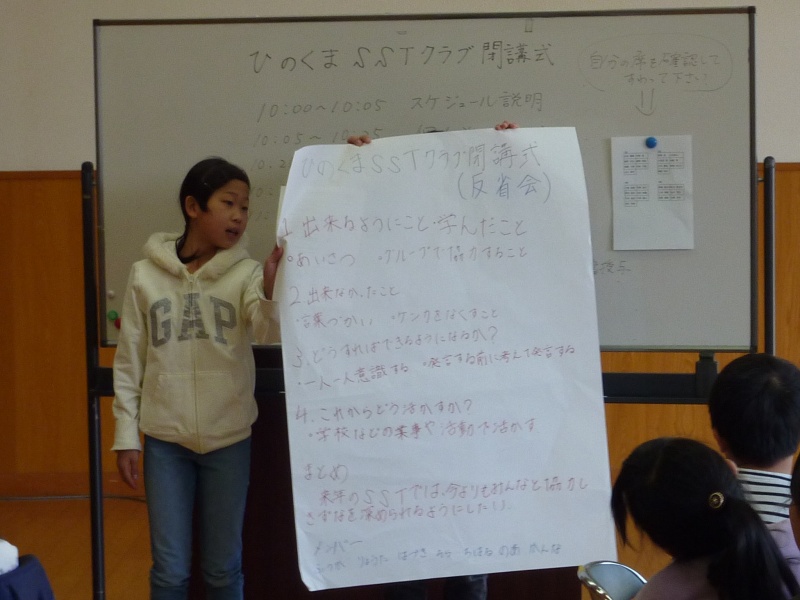 ひのくまSSTクラブ閉講式
自分の席を確認して
すわって下さい
10:00～10:05 スケジュール説明
10:05～10:25
ひのくまSSTクラブ閉講式
(反省会)
1 出来るようにこと・学んだこと
・あいさつ ・グループで協力すること
2 出来なかったこと
・言葉づかい ・ケンカをなくすこと
3. どうすればできるようになるか?
・一人一人意識する ・発言する前に考えて発言する
4. これからどう活かすか?
・学校などの実事や活動で活かす
まとめ
来年のSSTでは、今よりもみんなと協力し
きずなを深められるようにしたい。
メンバー
GAP